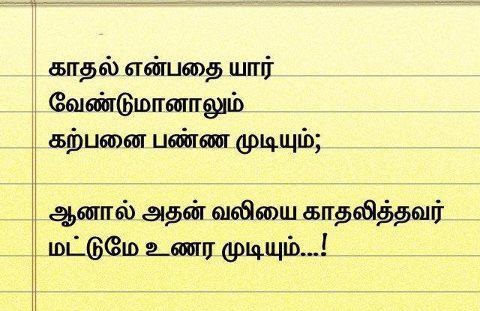 காதல் என்பதை யார்
வேண்டுமானாலும்
கற்பனை பண்ண முடியும்;
ஆனால் அதன் வலியை காதலித்தவர்
மட்டுமே உணர முடியும்...!